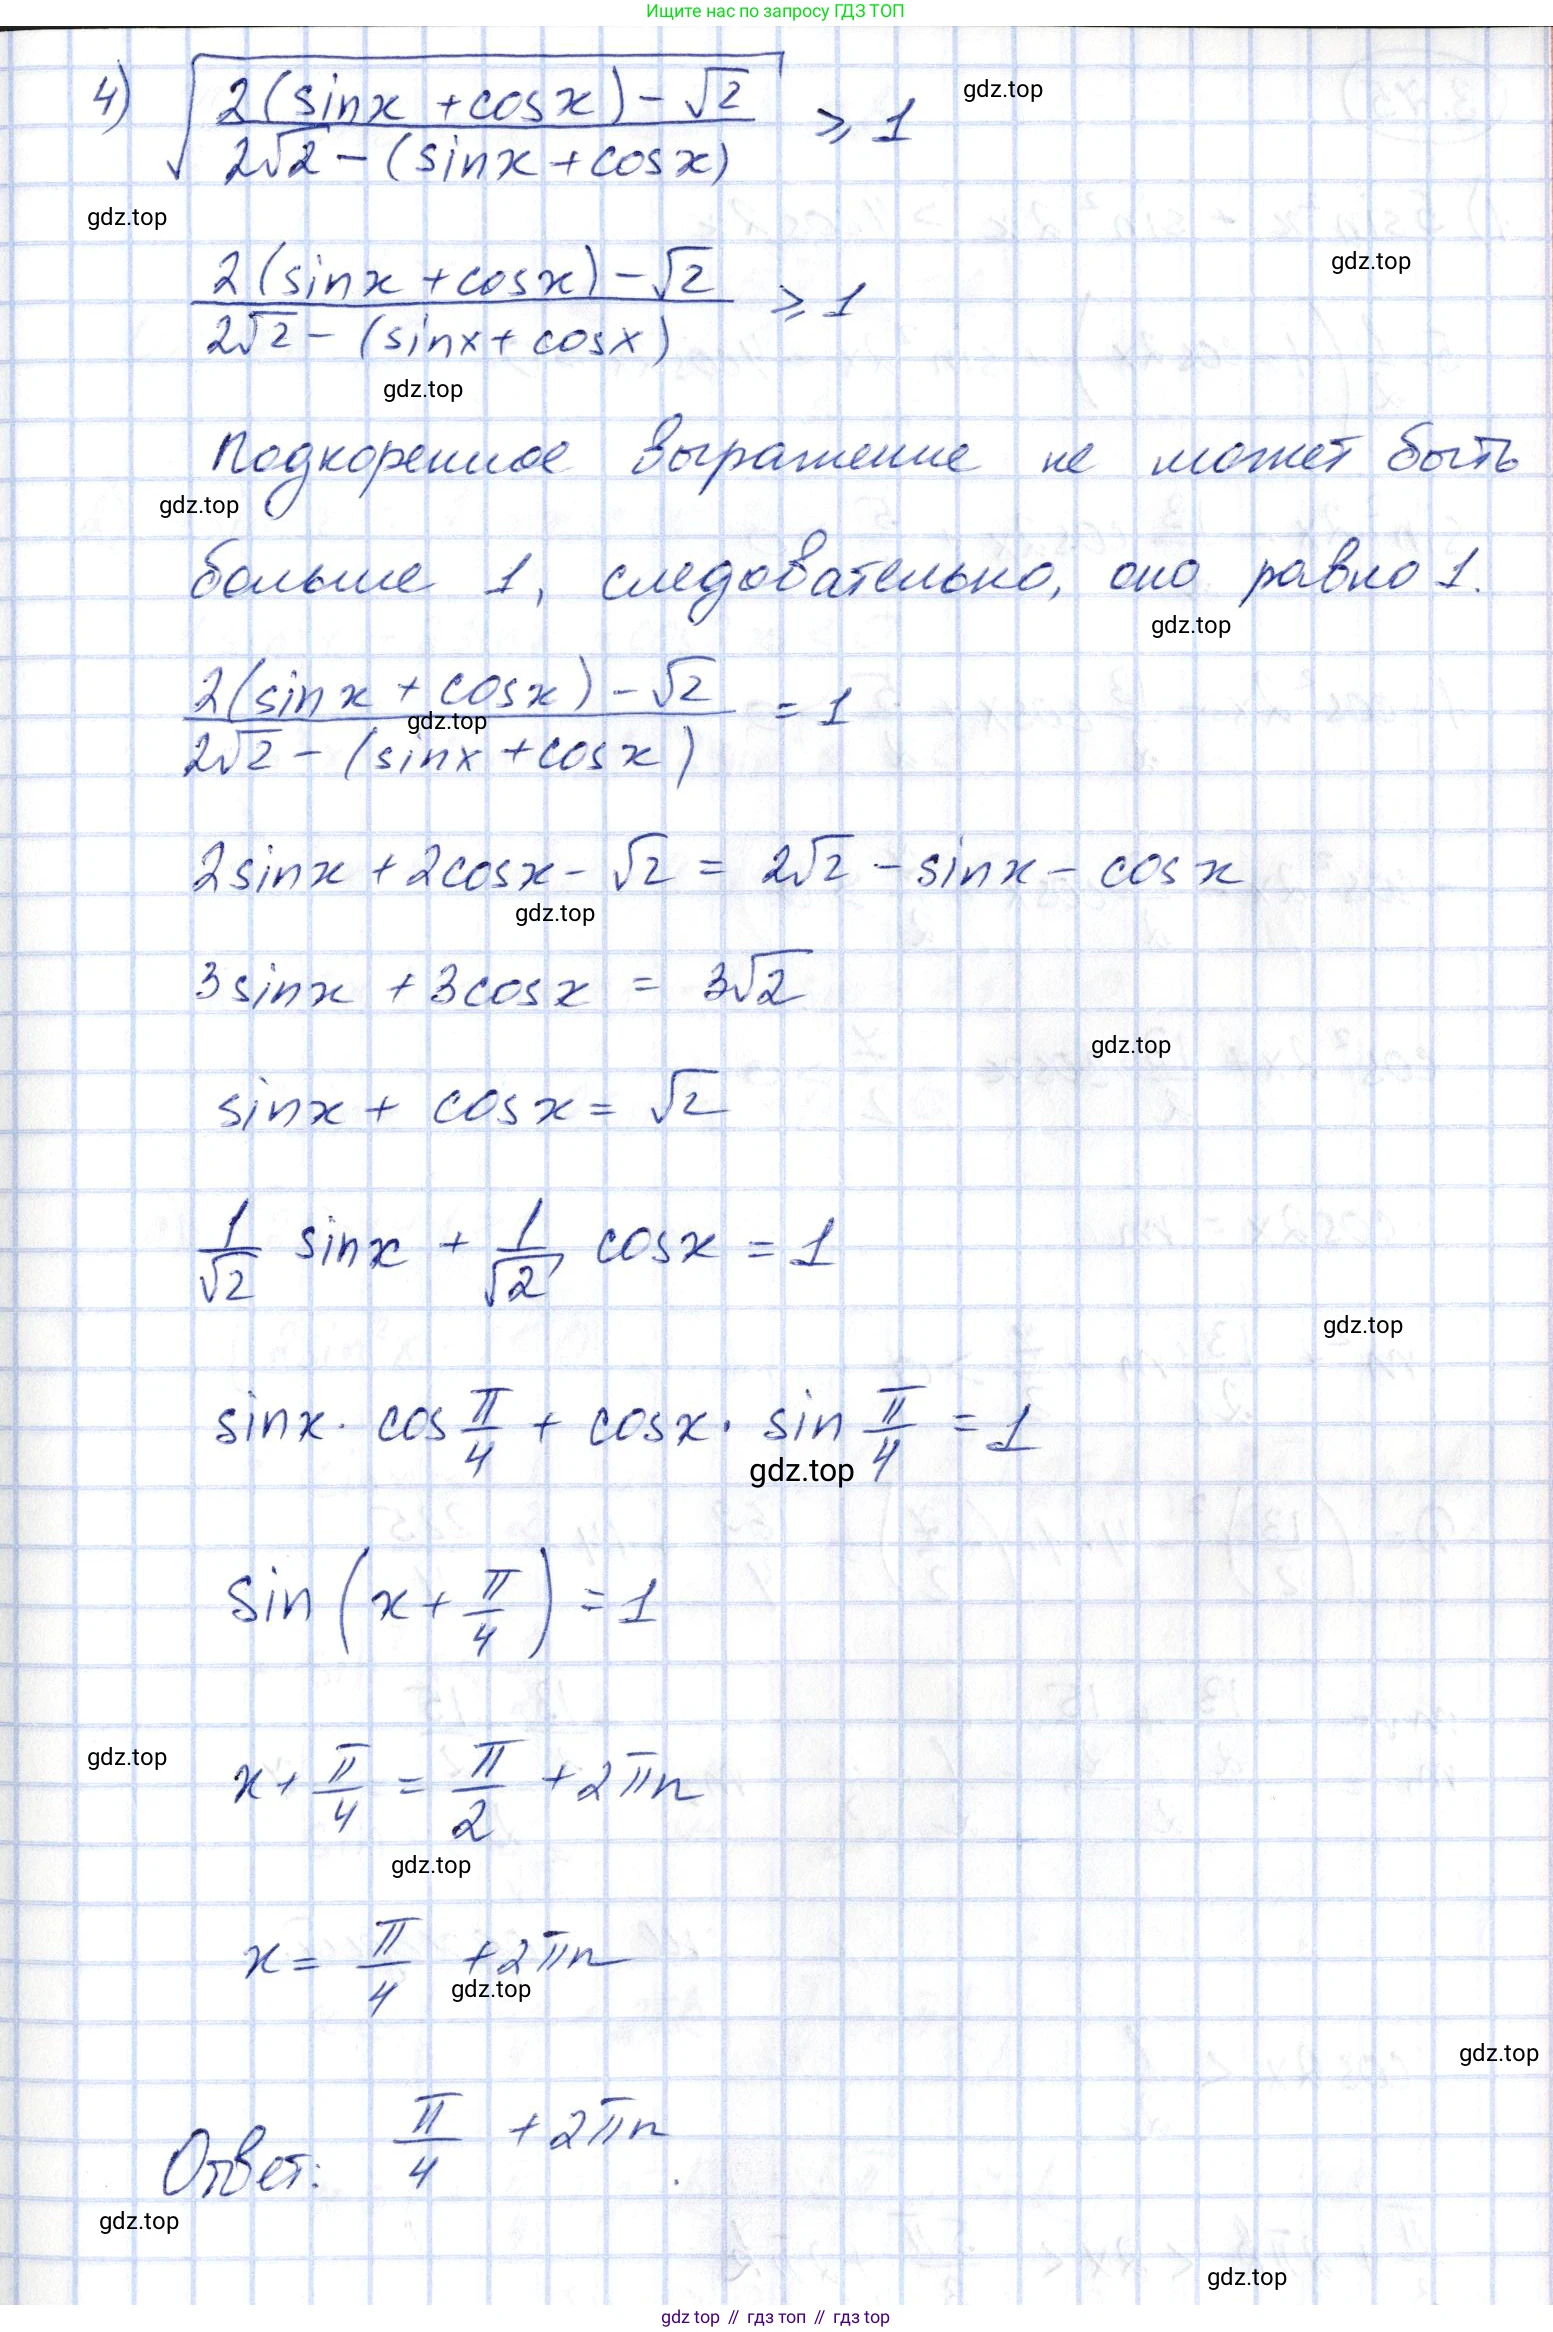 Ищите нас по запросу ГДЗ ТОП
4) √((2(sinx + cosx) − √2)/(2√2 − (sinx + cosx))) ⩾ 1
gdz.top
gdz.top
gdz.top
(2(sinx + cosx) − √2)/(2√2 − (sinx + cosx)) ⩾ 1
gdz.top
Подкоренное выражение не может быть
gdz.top
больше 1, следовательно, оно равно 1.
gdz.top
(2(sinx + cosx) − √2)/(2√2 − (sinx + cosx)) = 1
gdz.top
2sinx + 2cosx − √2 = 2√2 − sinx − cosx
gdz.top
3sinx + 3cosx = 3√2
gdz.top
sinx + cosx = √2
1/√2 sinx + 1/√2 cosx = 1
gdz.top
sinx · cos π/4 + cosx · sin π/4 = 1
gdz.top
sin(x + π/4) = 1
gdz.top
x + π/4 = π/2 + 2πn
gdz.top
x = π/4 + 2πn
gdz.top
gdz.top
Ответ: π/4 + 2πn.
gdz.top
gdz.top
gdz.top // гдз топ // гдз top